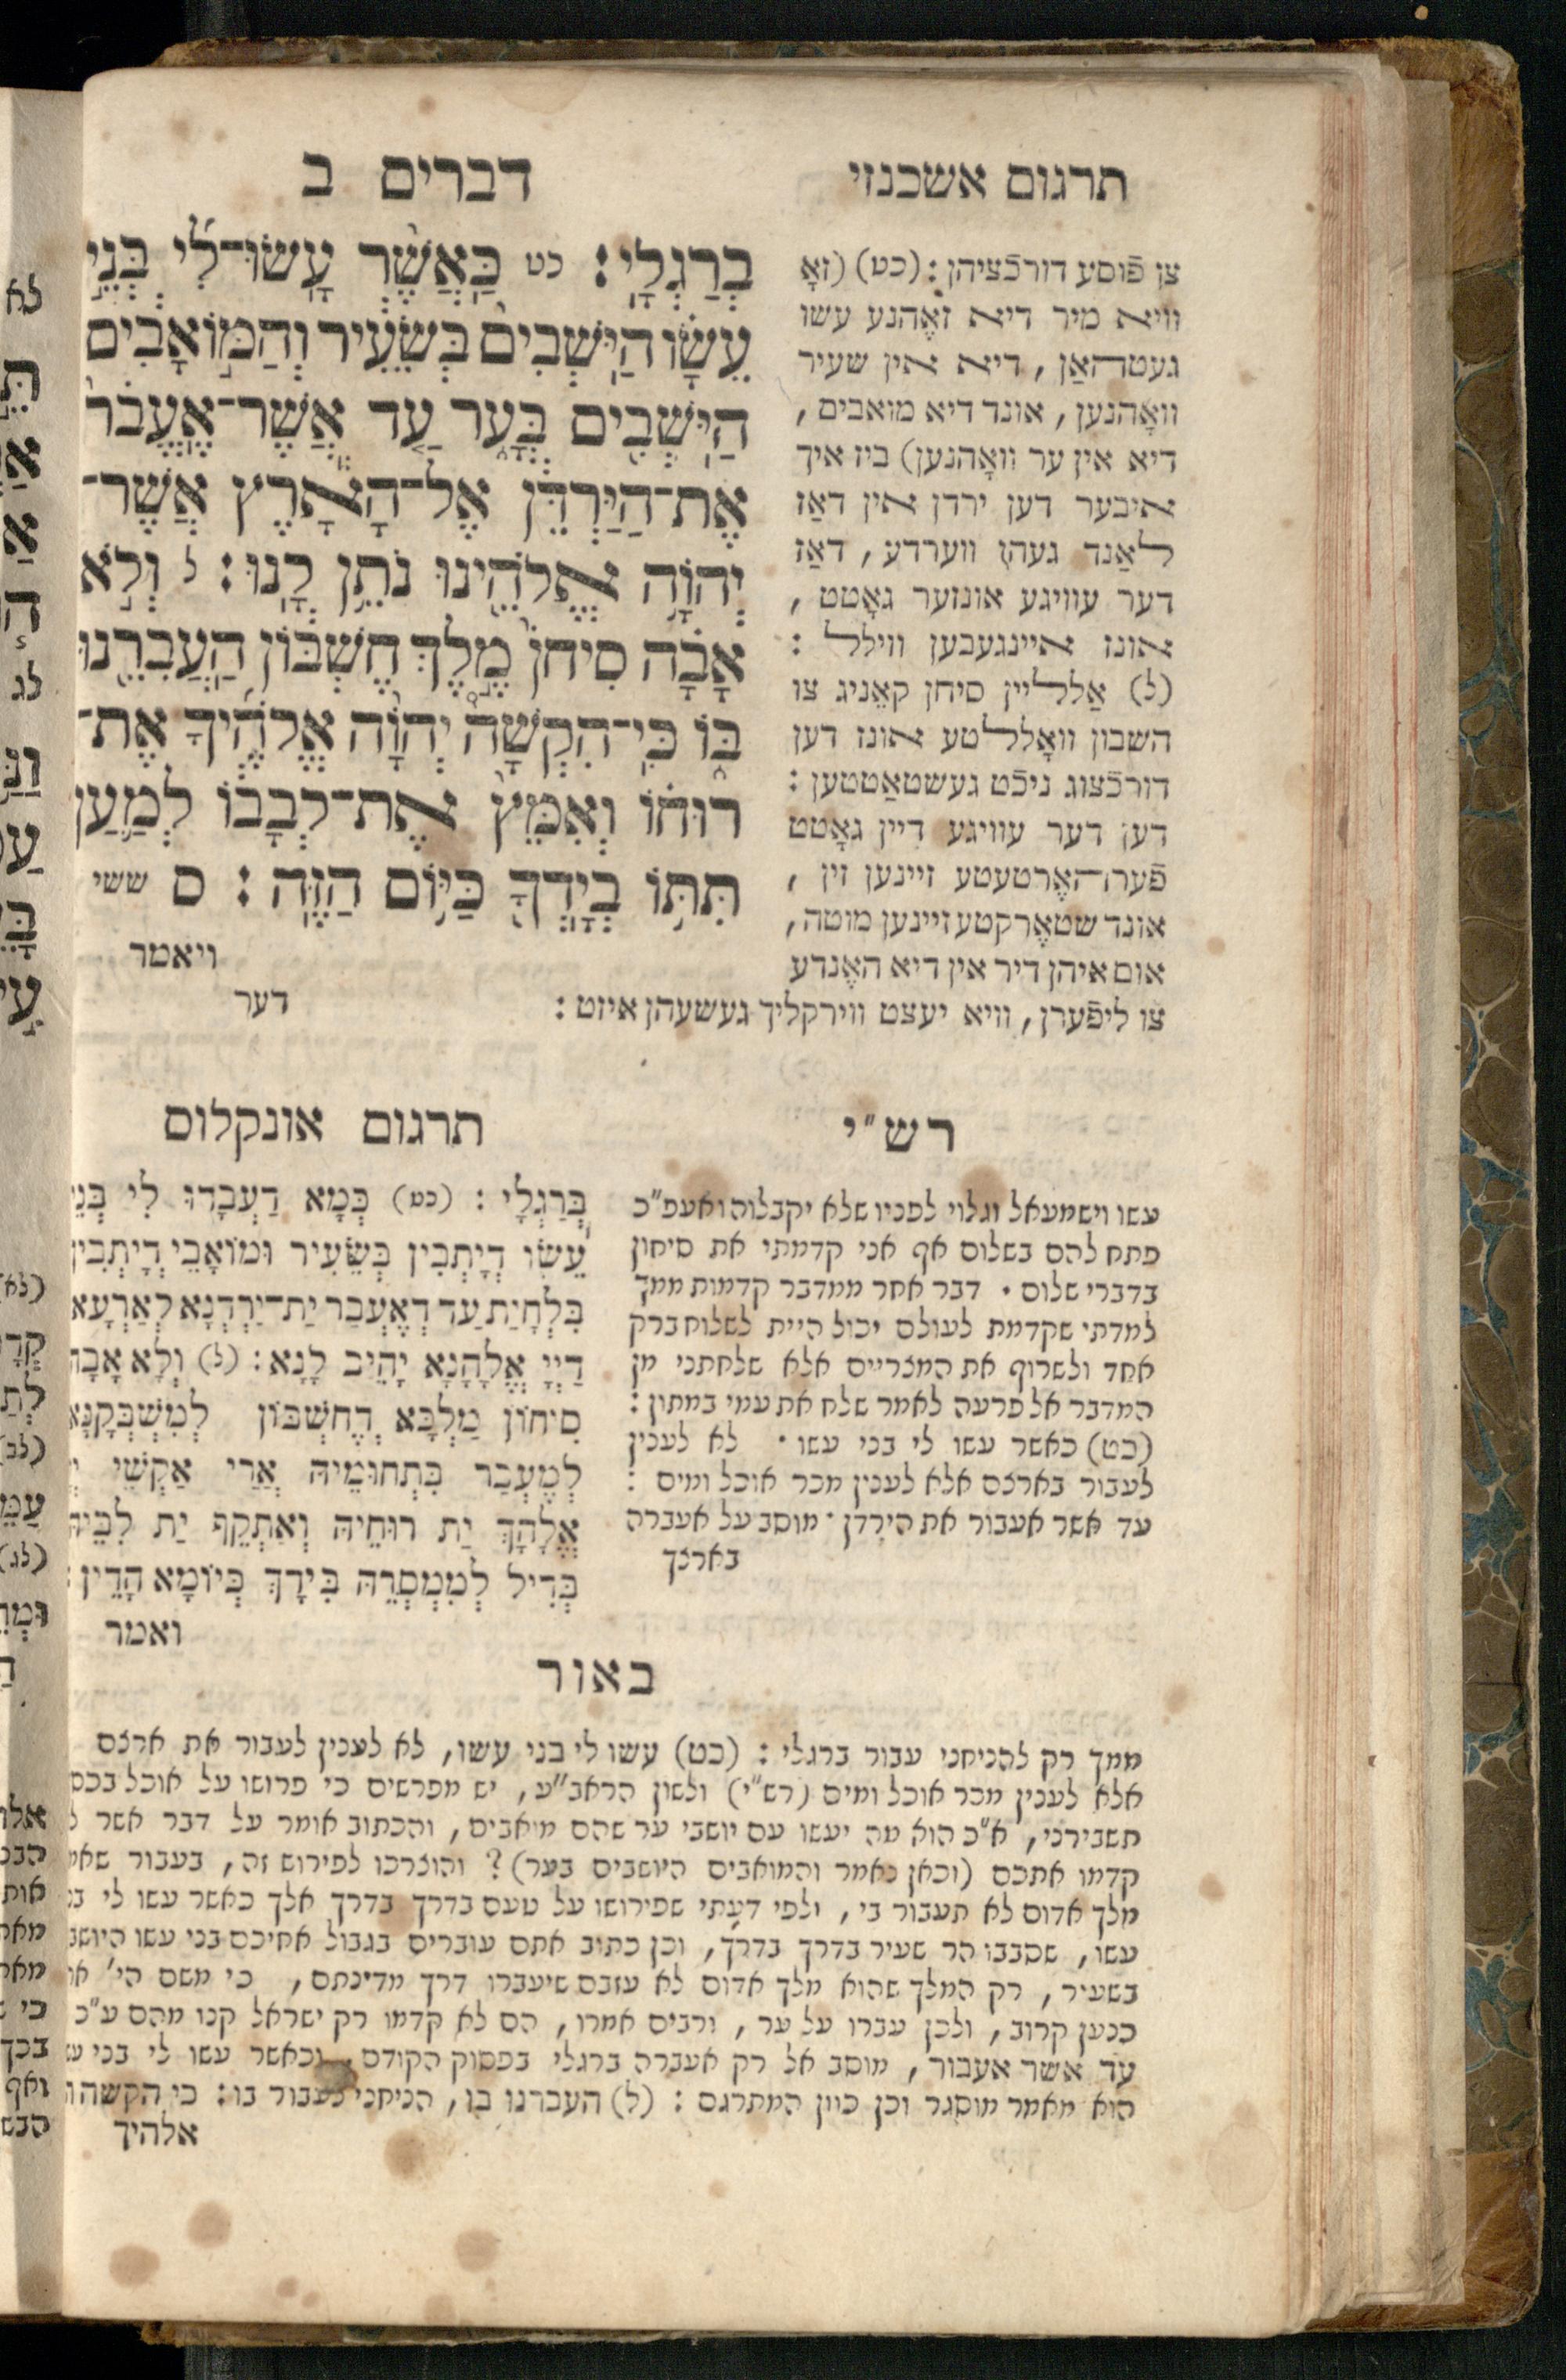 תרגום אשכנזי
דברים ב
צו פֿוסע דורכֿציהן: (כט) (זאָ
וויא מיר דיא זאֶהנע עשו
געטהאַן, דיא אין שעיר
וואָהנען, אונד דיא מואבים,
דיא אין ער וואָהנען) ביז איך
איבער דען ירדן אין דאַז
לאַנד געהן ווערדע, דאַז
דער עוויגע אונזער גאָטט,
אונז איינגעבען ווילל:
(ל) אַלליין סיחן קאֶניג צו
השבון וואָללטע אונז דען
דורכֿצוג ניכֿט געשטאַטטען:
דען דער עוויגע דיין גאָטט
פֿערהאֶרטעטע זיינען זין,
אונד שטאֶרקטע זיינען מוטה,
אום איהן דיר אין דיא האֶנדע
צו ליפֿערן, וויא יעצט ווירקליך געשעהן איזט:
דער
בְרַגְלָֽי: כט כַּאֲשֶׁ֨ר עָֽשׂוּ־לִ֜י בְּנֵ֣י
עֵשָׂ֗ו הַיֹּֽשְׁבִים֙ בְּשֵׂעִ֔יר וְהַמּ֣וֹאָבִ֔ים
הַיֹּֽשְׁבִ֖ים בְּעָ֑ר עַ֤ד אֲשֶֽׁר־אֶֽעֱבֹר֙
אֶת־הַיַּרְדֵּ֔ן אֶל־הָאָ֕רֶץ אֲשֶׁר־
יְהוָֹ֥ה אֱלֹהֵ֖ינוּ נֹתֵ֥ן לָֽנוּ: ל וְלֹ֣א
אָבָ֗ה סִיחֹן֙ מֶ֣לֶךְ חֶשְׁבּ֔וֹן הַעֲבִרֵ֖נוּ
בּ֑וֹ כִּֽי־הִקְשָׁה֩ יְהוָֹ֨ה אֱלֹהֶ֜יךָ אֶת־
רוּח֗וֹ וְאִמֵּץ֙ אֶת־לְבָב֔וֹ לְמַ֛עַן
תִּתּ֥וֹ בְיָדְךָ֖ כַּיּ֥וֹם הַזֶּֽה: ס ששי
ויאמר
רש"י
עשו וישמעאל וגלוי לפניו שלא יקבלוה ואעפ"כ
פתח להם בשלום אף אני קדמתי את סיחון
בדברי שלום. דבר אחר ממדבר קדמות ממך
למדתי שקדמת לעולם יכול היית לשלוח ברק
אחד ולשרוף את המצריים אלא שלחתני מן
המדבר אל פרעה לאמר שלח את עמי במתון:
(כט) כאשר עשו לי בני עשו. לא לענין
לעבור בארצם אלא לענין מכר אוכל ומים:
עד אשר אעבור את הירדן. מוסב על אעברה
בארצך
תרגום אונקלוס
בְּרַגְלָי: (כט) כְּמָא דַעְבָדוּ לִי בְּנֵי
עֵשָׂו דְיָתְבִין בְּשֵׂעִיר וּמוֹאָבֵי דְיָתְבִין
בִּלְחָיַת עַד דְאֶעְבַר יַת־יַרְדְנָא לְאַרְעָא
דַייָ אֱלָהָנָא יָהֵיב לָנָא: (ל) וְלָא אָבָה
סִיחוֹן מַלְכָּא דְחֶשְׁבּוֹן לְמִשְׁבְּקָנָא
לְמֶעְבַר בִּתְחוּמֵיהּ אֲרֵי אַקְשֵׁי
אֱלָהָךְ יַת רוּחֵיהּ וְאַתְקֵף יַת לִבֵּיהּ
בְּדִיל לְמִמְסְרֵהּ בִּידָךְ כְּיוֹמָא הָדֵין:
ואמר
באור
ממך רק להניחני עבור ברגלי: (כט) עשו לי בני עשו, לא לענין לעבור את ארצם
אלא לענין מכר אוכל ומים (רש"י) ולשון הראב"ע, יש מפרשים כי פרושו על אוכל בכסף
תשבירני, א"כ הוא מה יעשו עם יושבי ער שהם מואבים, והכתוב אומר על דבר אשר
קדמו אתכם (וכאן נאמר והמואבים היושבים בער)? והוצרכו לפירוש זה, בעבור שאמר
מלך אדום לא תעבור בי, ולפי דעתי שפירושו על טעם בדרך בדרך אלך כאשר עשו לי בני
עשו, שסבבו הר שעיר בדרך בדרך, וכן כתוב אתם עוברים בגבול אחיכם בני עשו היושבים
בשעיר, רק המלך שהוא מלך אדום לא עזבם שיעברו דרך מדינתם, כי משם הי'
כנען קרוב, ולכן עברו על ער, ורבים אמרו, הם לא קדמו רק ישראל קנו מהם ע"כ
עד אשר אעבור, מוסב אל רק אעברה ברגלי בפסוק הקודם, וכאשר עשו לי בני
הוא מאמר מוסגר וכן כוון המתרגם: (ל) העברנו בו, הניחני לעבור בו: כי הקשה
אלהיך